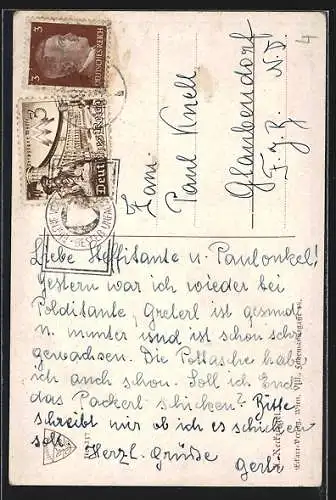 3
3
DEUTSCHES REICH
4
Fam.
Paul Knell
Glaubendorf
N. D.
Liebe Steffitante u. Paulonkel!
Gestern war ich wieder bei
Polditante, Greterl ist gesund
u. munter und ist schon sehr
gewachsen. Die Pottasche habe
ich auch schon. Soll ich Euch
das Packerl schicken? Bitte
schreibt mir ob ich es schicken
soll. Herzl. Grüße
Gerti